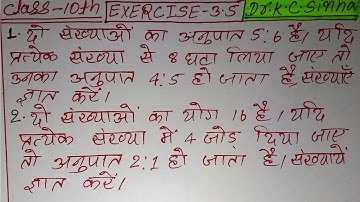 Class-10th EXERCISE-3.5 Dr. K.C. Sinha
1. दो संख्याओं का अनुपात 5:6 है। यदि
प्रत्येक संख्या से 8 घटा लिया जाए तो
उनका अनुपात 4:5 हो जाता है संख्याएँ
ज्ञात करें।
2. दो संख्याओं का योग 16 है। यदि
प्रत्येक संख्या में 4 जोड़ दिया जाए
तो अनुपात 2:1 हो जाता है। संख्यायें
ज्ञात करें।